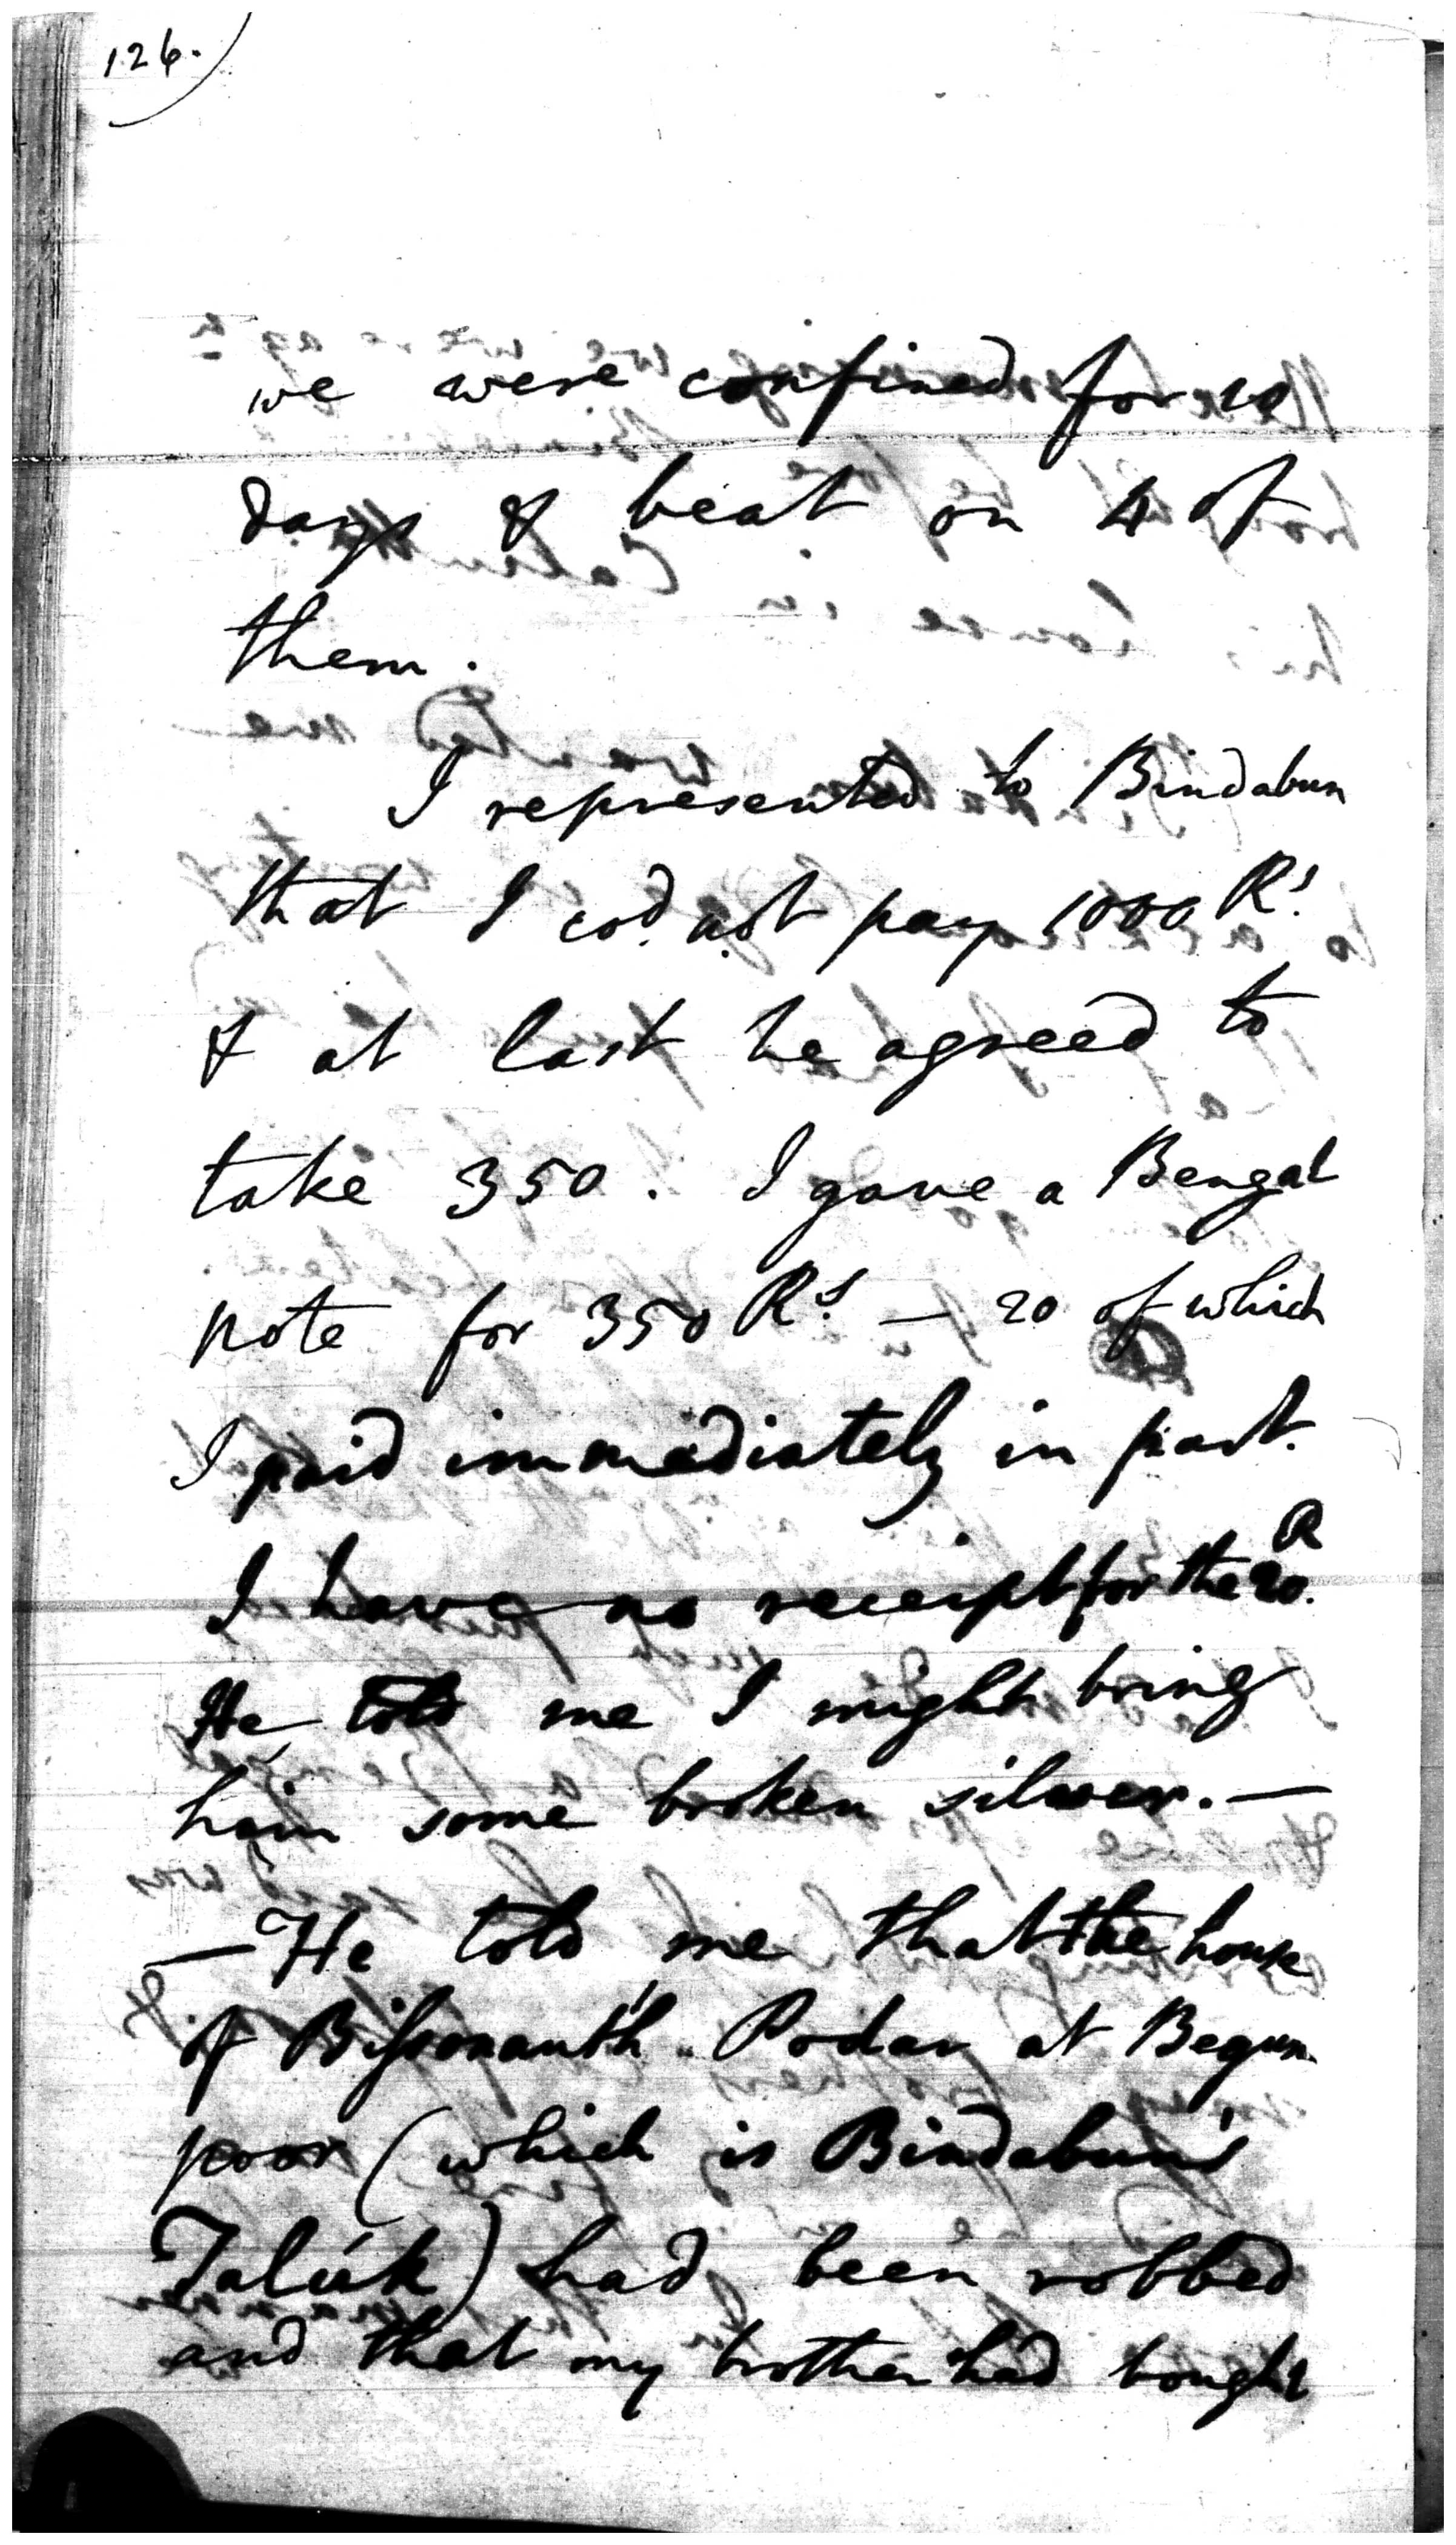 126.
we were confined for 10
days & beat on 4 of
them.
I represented to Bindabun
that I cod. not pay 1000 Rs.
& at last he agreed to
take 350. I gave a Bengal
note for 350 Rs. — 20 of which
I paid immediately in part.
I have no receipt for the 20. R
He told me I might bring
him some broken silver. —
— He told me that the house
of Bissonauth Podar at Begum
poor (which is Bindabun's
Talúk) had been robbed
and that my brother had bought